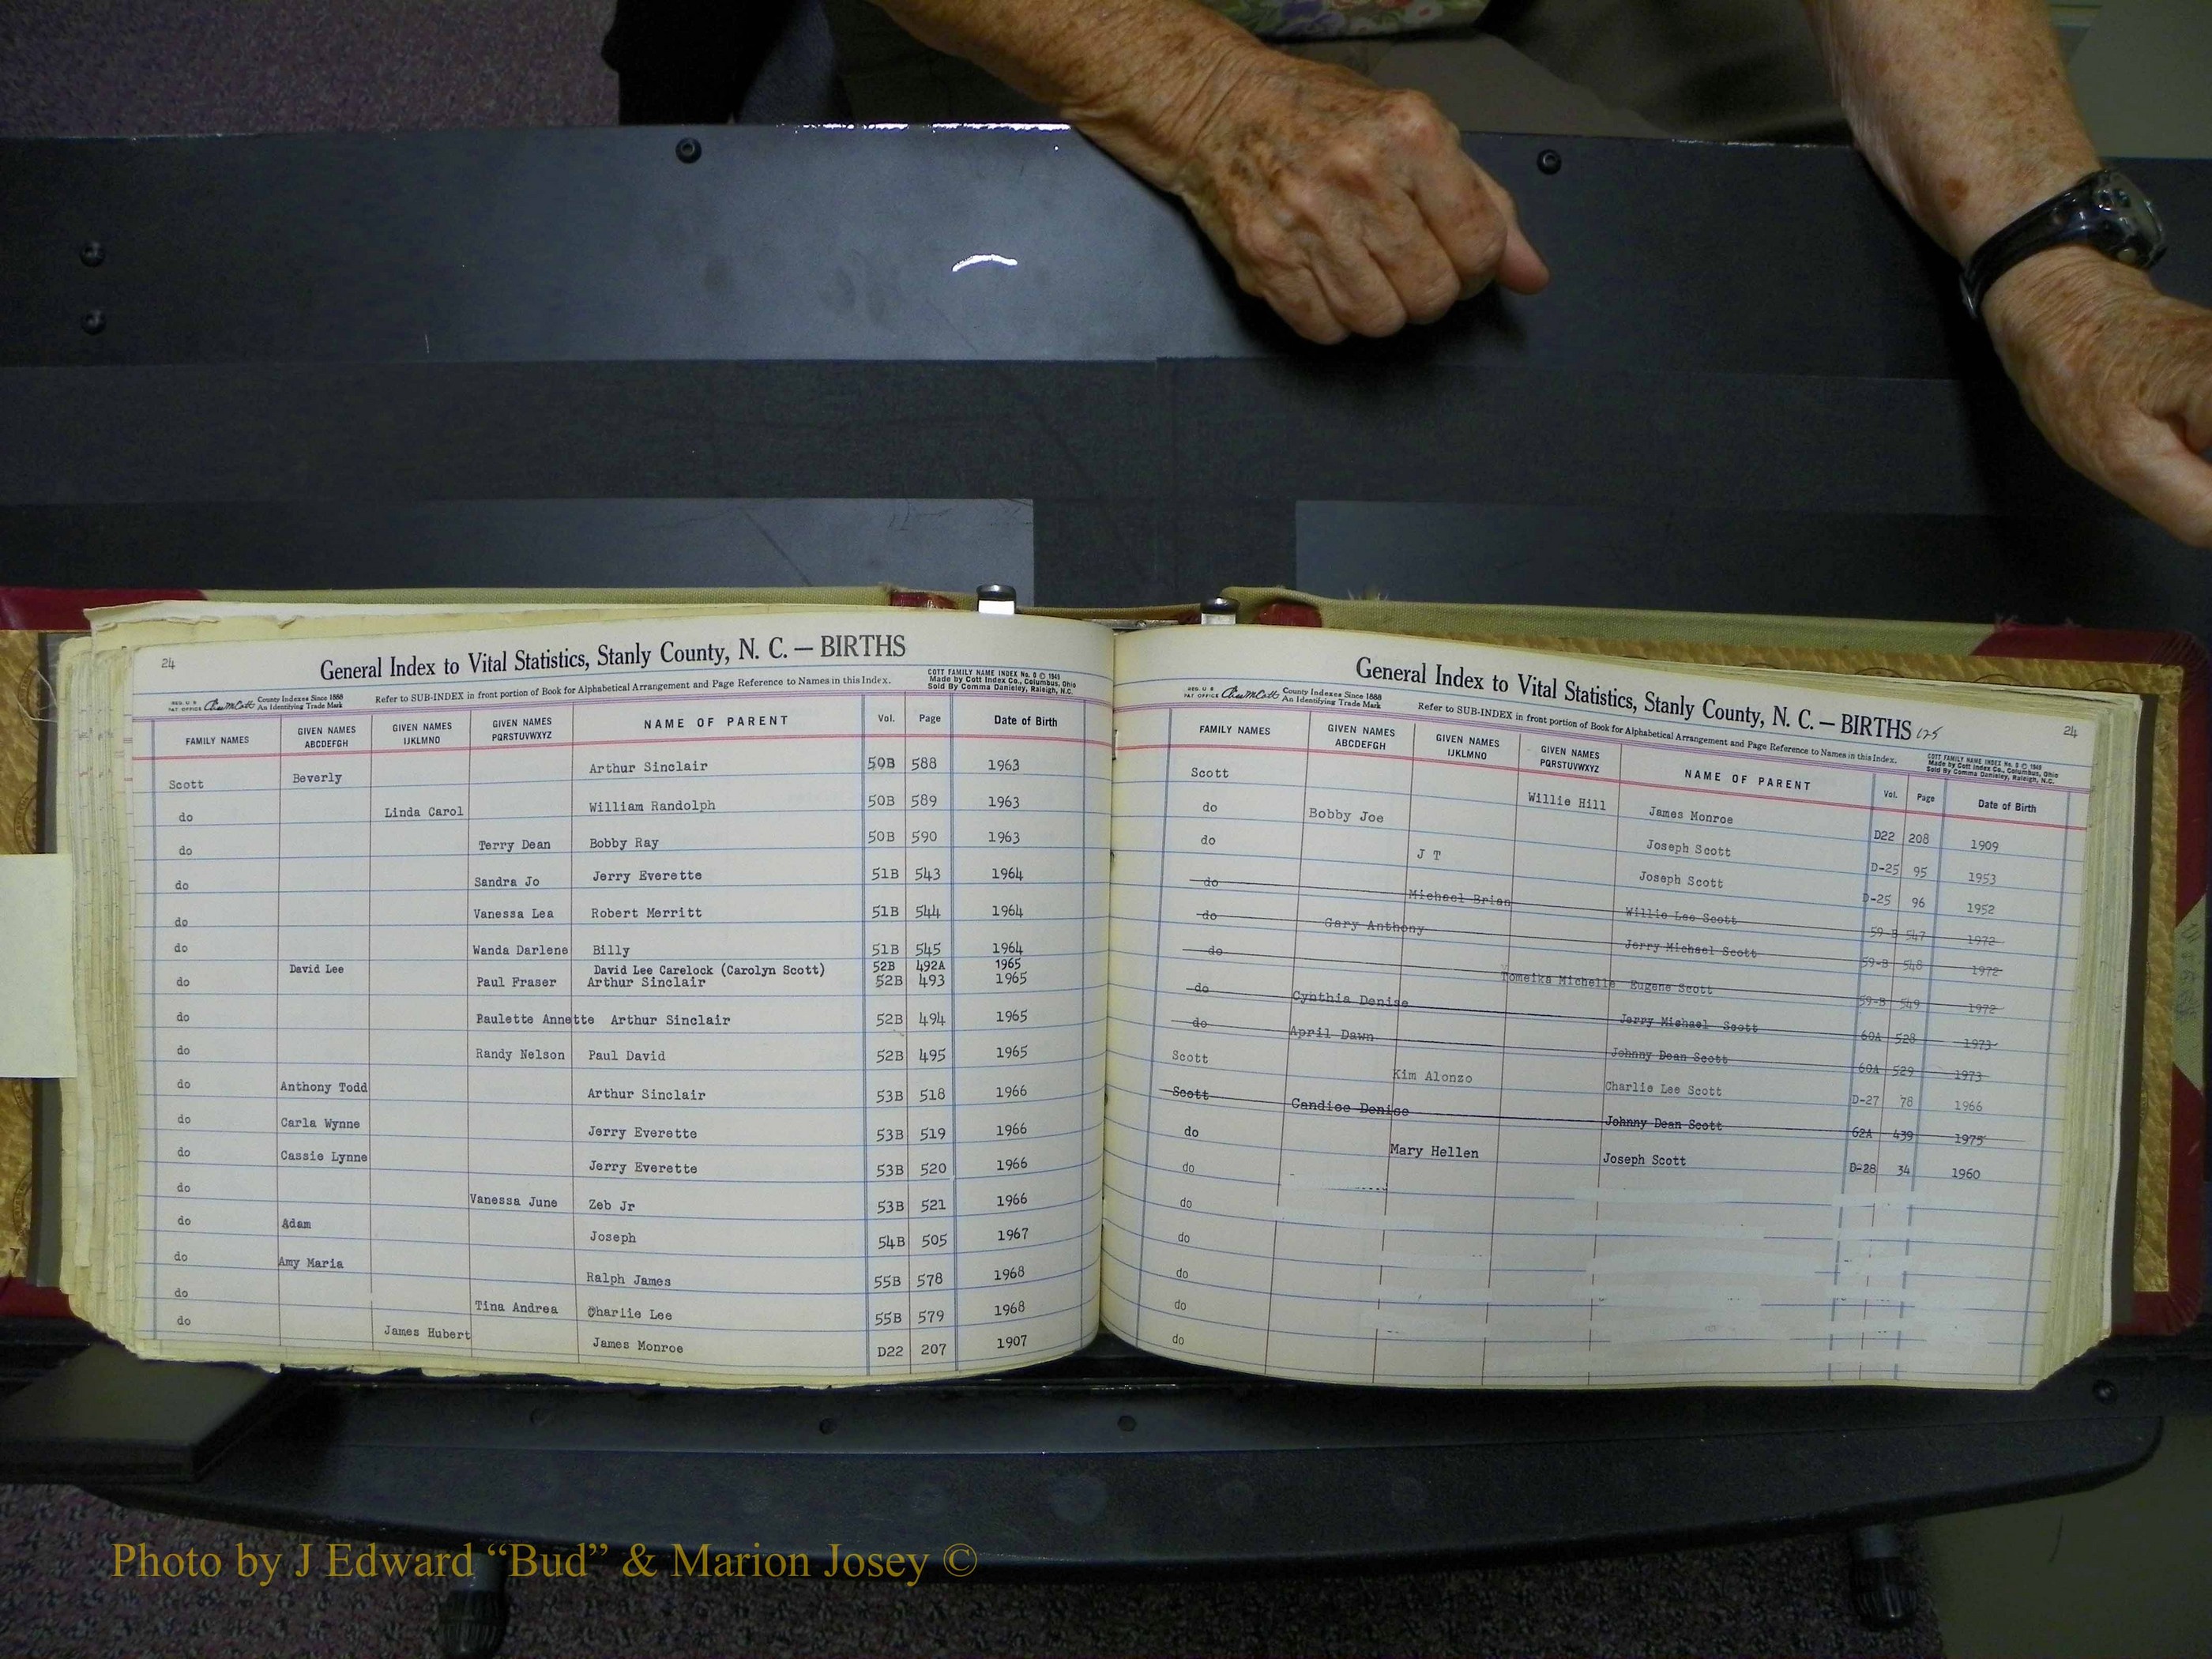 24
General Index to Vital Statistics, Stanly County, N. C. — BIRTHS
REG. U S PAT OFFICE County Indexes Since 1888 An Identifying Trade Mark
Refer to SUB-INDEX in front portion of Book for Alphabetical Arrangement and Page Reference to Names in this Index.
COTT FAMILY NAME INDEX No. 0 © 1945
Made by Cott Index Co., Columbus, Ohio
Sold By Comma Danieley, Raleigh, N.C.
FAMILY NAMES GIVEN NAMES ABCDEFGH GIVEN NAMES IJKLMNO GIVEN NAMES PQRSTUVWXYZ NAME OF PARENT Vol. Page Date of Birth
Scott Beverly Arthur Sinclair 50B 588 1963
do Linda Carol William Randolph 50B 589 1963
do Terry Dean Bobby Ray 50B 590 1963
do Sandra Jo Jerry Everette 51B 543 1964
do Vanessa Lea Robert Merritt 51B 544 1964
do Wanda Darlene Billy 51B 545 1964
David Lee David Lee Carelock (Carolyn Scott) 52B 492A 1965
do Paul Fraser Arthur Sinclair 52B 493 1965
do Paulette Annette Arthur Sinclair 52B 494 1965
do Randy Nelson Paul David 52B 495 1965
do Anthony Todd Arthur Sinclair 53B 518 1966
do Carla Wynne Jerry Everette 53B 519 1966
do Cassie Lynne Jerry Everette 53B 520 1966
do Vanessa June Zeb Jr 53B 521 1966
do Adam Joseph 54B 505 1967
do Amy Maria Ralph James 55B 578 1968
do Tina Andrea Charlie Lee 55B 579 1968
do James Hubert James Monroe D22 207 1907
General Index to Vital Statistics, Stanly County, N. C. — BIRTHS 125
24
REG. U S PAT OFFICE County Indexes Since 1888 An Identifying Trade Mark
Refer to SUB-INDEX in front portion of Book for Alphabetical Arrangement and Page Reference to Names in this Index.
COTT FAMILY NAME INDEX No. 0 © 1945
Made by Cott Index Co., Columbus, Ohio
Sold By Comma Danieley, Raleigh, N.C.
FAMILY NAMES GIVEN NAMES ABCDEFGH GIVEN NAMES IJKLMNO GIVEN NAMES PQRSTUVWXYZ NAME OF PARENT Vol. Page Date of Birth
Scott Willie Hill James Monroe D22 208 1909
do Bobby Joe Joseph Scott D-25 95 1953
do J T Joseph Scott D-25 96 1952
do Michael Brian Willie Lee Scott 59-B 547 1972
do Gary Anthony Jerry Michael Scott 59-B 548 1972
do Tomeika Michelle Eugene Scott 59-B 549 1972
do Cynthia Denise Jerry Michael Scott 60A 528 1973
do April Dawn Johnny Dean Scott 60A 529 1973
Scott Kim Alonzo Charlie Lee Scott D-27 78 1966
Scott Candice Denise Johnny Dean Scott 62A 439 1975
do Mary Hellen Joseph Scott D-28 34 1960
do
do
do
do
do
do
Photo by J Edward “Bud” & Marion Josey ©